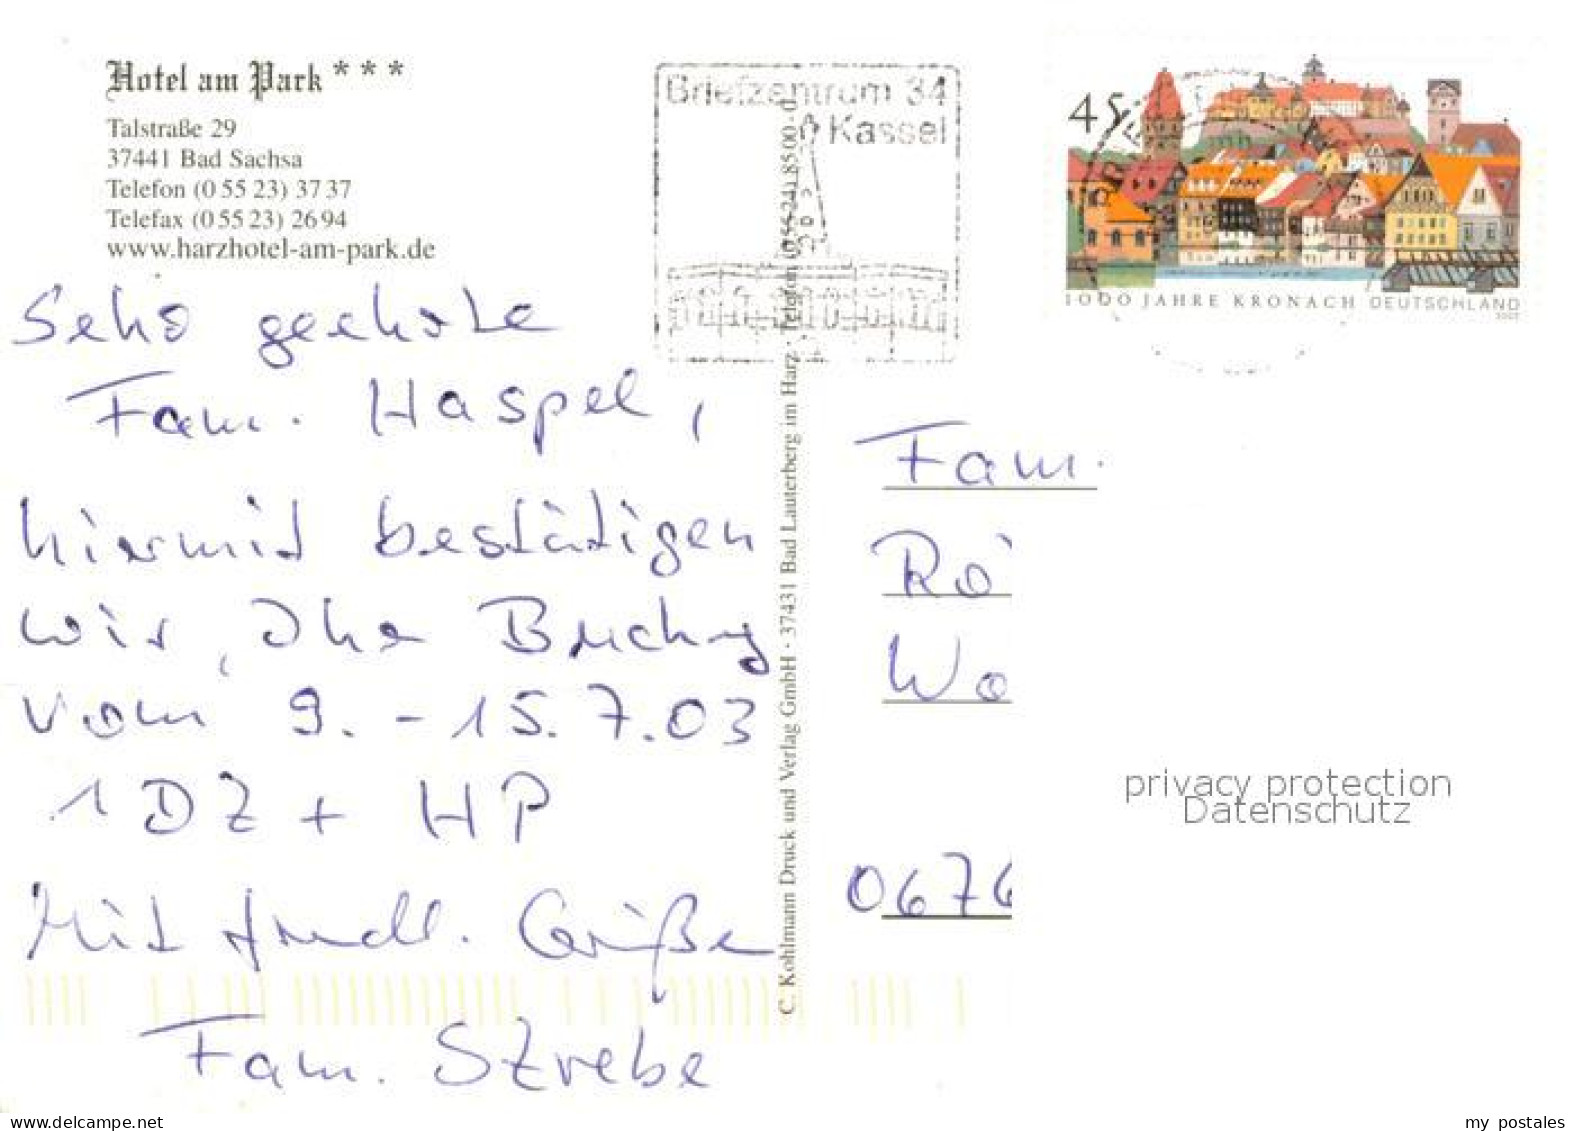 Hotel am Park ***
Talstraße 29
37441 Bad Sachsa
Telefon (0 55 23) 37 37
Telefax (0 55 23) 26 94
www.harzhotel-am-park.de
Sehr geehrte
Fam. Haspel,
hiermit bestätigen
wir, Ihre Buchung
vom 9. - 15.7.03
1 DZ + HP
Mit freundl. Grüße
Fam. Strebe
C. Kohlmann Druck und Verlag GmbH · 37431 Bad Lauterberg im Harz · Telefon (0 55 24) 85 00 - 0
Briefzentrum 34
Kassel
45
1000 JAHRE KRONACH DEUTSCHLAND
Fam.
Rö
Wo
0676
privacy protection
Datenschutz
delcampe.net
my postales